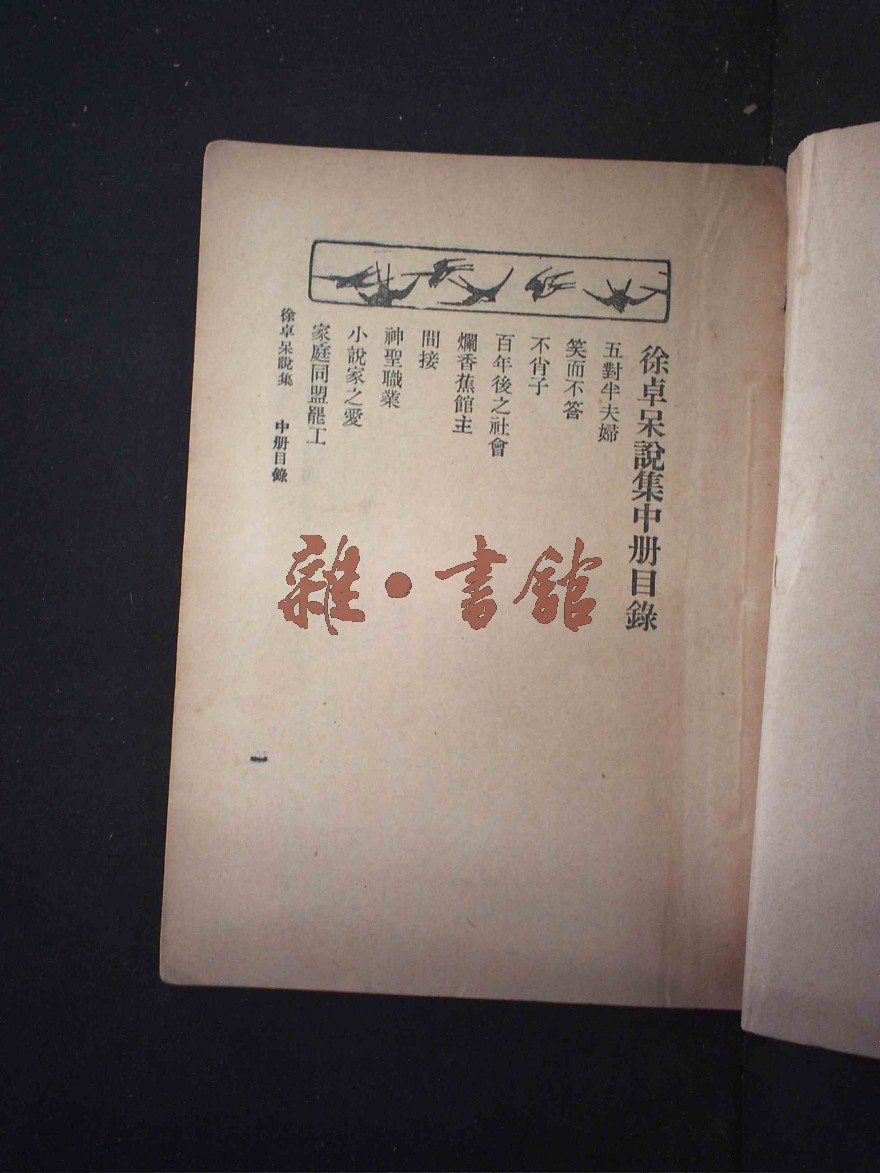 徐卓呆說集中册目錄
五對半夫婦
笑而不答
不肖子
百年後之社會
爛香蕉館主
間接
神聖職業
小說家之愛
家庭同盟罷工
徐卓呆說集 中册目錄
一
雜·書館